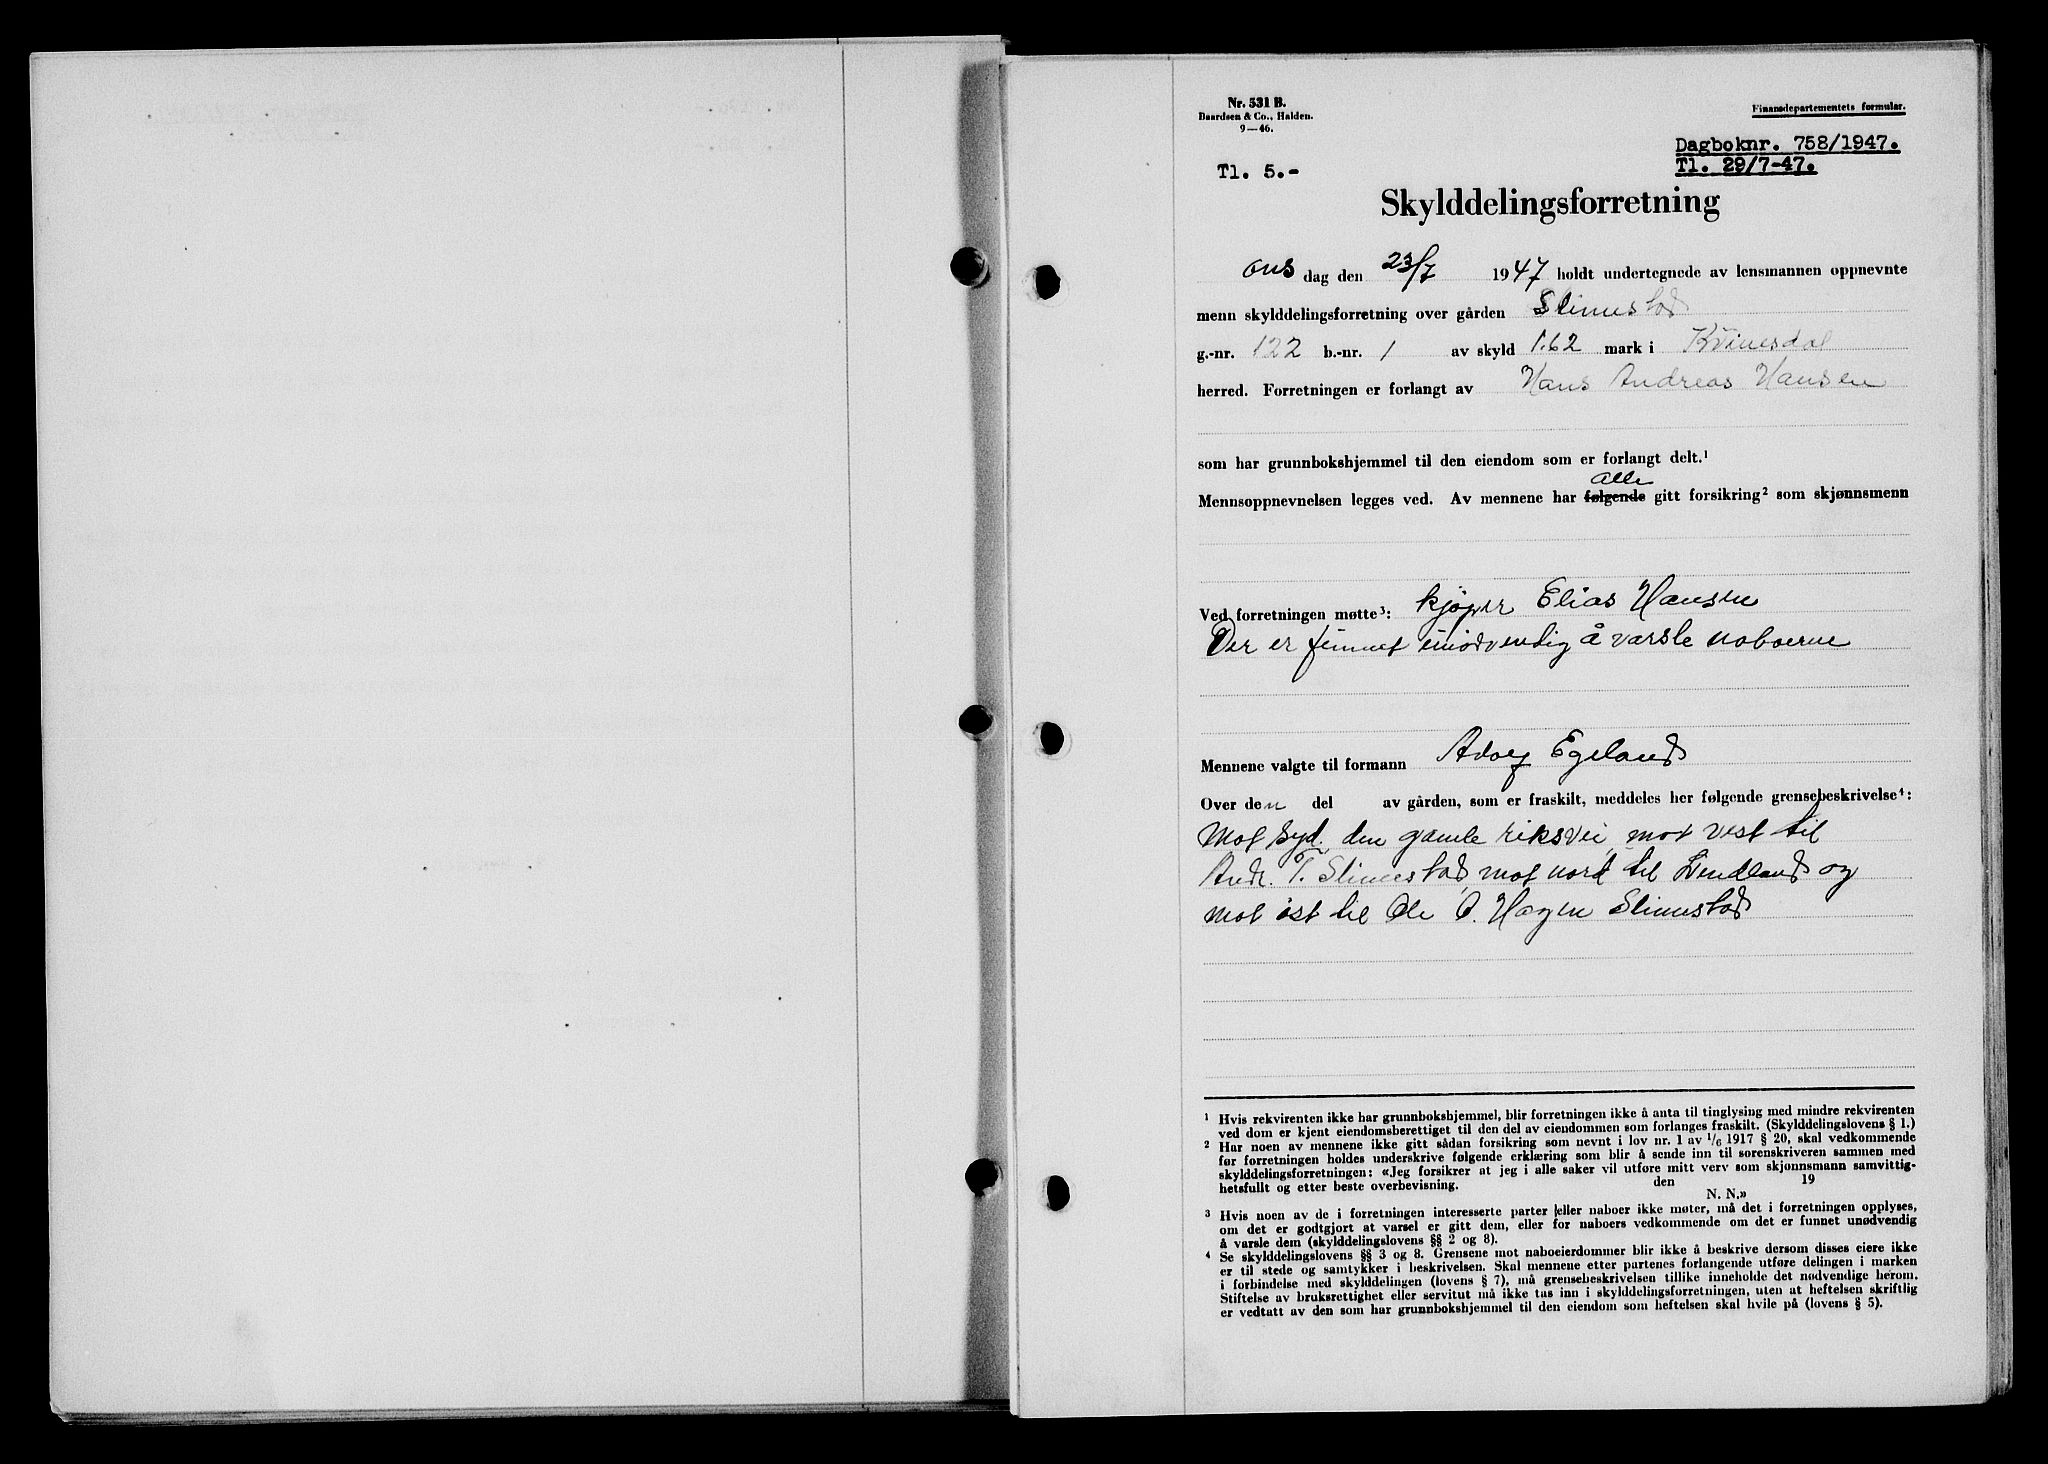 Nr. 531 B.
Baardsen & Co., Halden.
9—46.
Finansdepartementets formular.
Dagboknr. 758/1947.
Tl. 29/7-47.
Tl. 5.-
Skylddelingsforretning
ons dag den 23/7 1947 holdt undertegnede av lensmannen oppnevnte
menn skylddelingsforretning over gården Slimestad
g.-nr. 122 b.-nr. 1 av skyld 1.62 mark i Kvinesdal
herred. Forretningen er forlangt av Hans Andreas Hansen
som har grunnbokshjemmel til den eiendom som er forlangt delt.¹
alle
Mennsoppnevnelsen legges ved. Av mennene har følgende gitt forsikring² som skjønnsmenn
Ved forretningen møtte³: kjøper Elias Hansen
Der er funnet unødvendig å varsle naboerne
Mennene valgte til formann Adolf Egeland
Over den del av gården, som er fraskilt, meddeles her følgende grensebeskrivelse⁴:
Mot syd. den gamle riksvei, mot vest til
Andr. T. Slimestad, mot nord til Lendland og
mot øst til Ole O. Hagen Slimestad
¹ Hvis rekvirenten ikke har grunnbokshjemmel, blir forretningen ikke å anta til tinglysing med mindre rekvirenten
ved dom er kjent eiendomsberettiget til den del av eiendommen som forlanges fraskilt. (Skylddelingslovens § 1.)
² Har noen av mennene ikke gitt sådan forsikring som nevnt i lov nr. 1 av 1/6 1917 § 20, skal vedkommende
før forretningen holdes underskrive følgende erklæring som blir å sende inn til sorenskriveren sammen med
skylddelingsforretningen: «Jeg forsikrer at jeg i alle saker vil utføre mitt verv som skjønnsmann samvittig-
hetsfullt og etter beste overbevisning. den 19
N. N.»
³ Hvis noen av de i forretningen interesserte parter eller naboer ikke møter, må det i forretningen opplyses,
om det er godtgjort at varsel er gitt dem, eller for naboers vedkommende om det er funnet unødvendig
å varsle dem (skylddelingslovens §§ 2 og 8).
⁴ Se skylddelingslovens §§ 3 og 8. Grensene mot naboeierdommer blir ikke å beskrive dersom disses eiere ikke
er til stede og samtykker i beskrivelsen. Skal mennene etter partenes forlangende utføre delingen i marken
i forbindelse med skylddelingen (lovens § 7), må grensebeskrivelsen tillike inneholde det nødvendige herom.
Stiftelse av bruksrettighet eller servitut må ikke tas inn i skylddelingsforretningen, uten at heftelsen skriftlig
er vedtatt av den som har grunnbokshjemmel til den eiendom som heftelsen skal hvile på (lovens § 5).